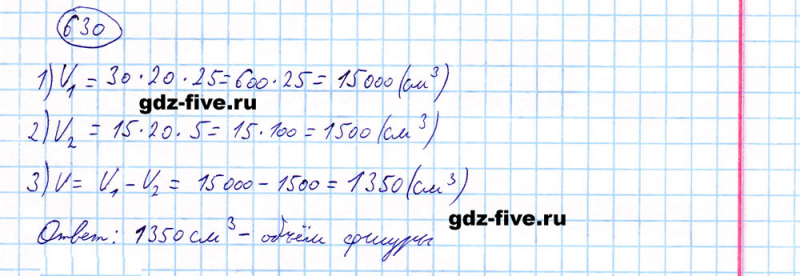 630
1) V₁ = 30·20·25=600·25= 15000(см³)
gdz-five.ru
2) V₂ = 15·20·5 = 15·100 = 1500(см³)
3) V= V₁-V₂ = 15000-1500=1350(см³)
gdz-five.ru
Ответ: 1350см³- объём фигуры